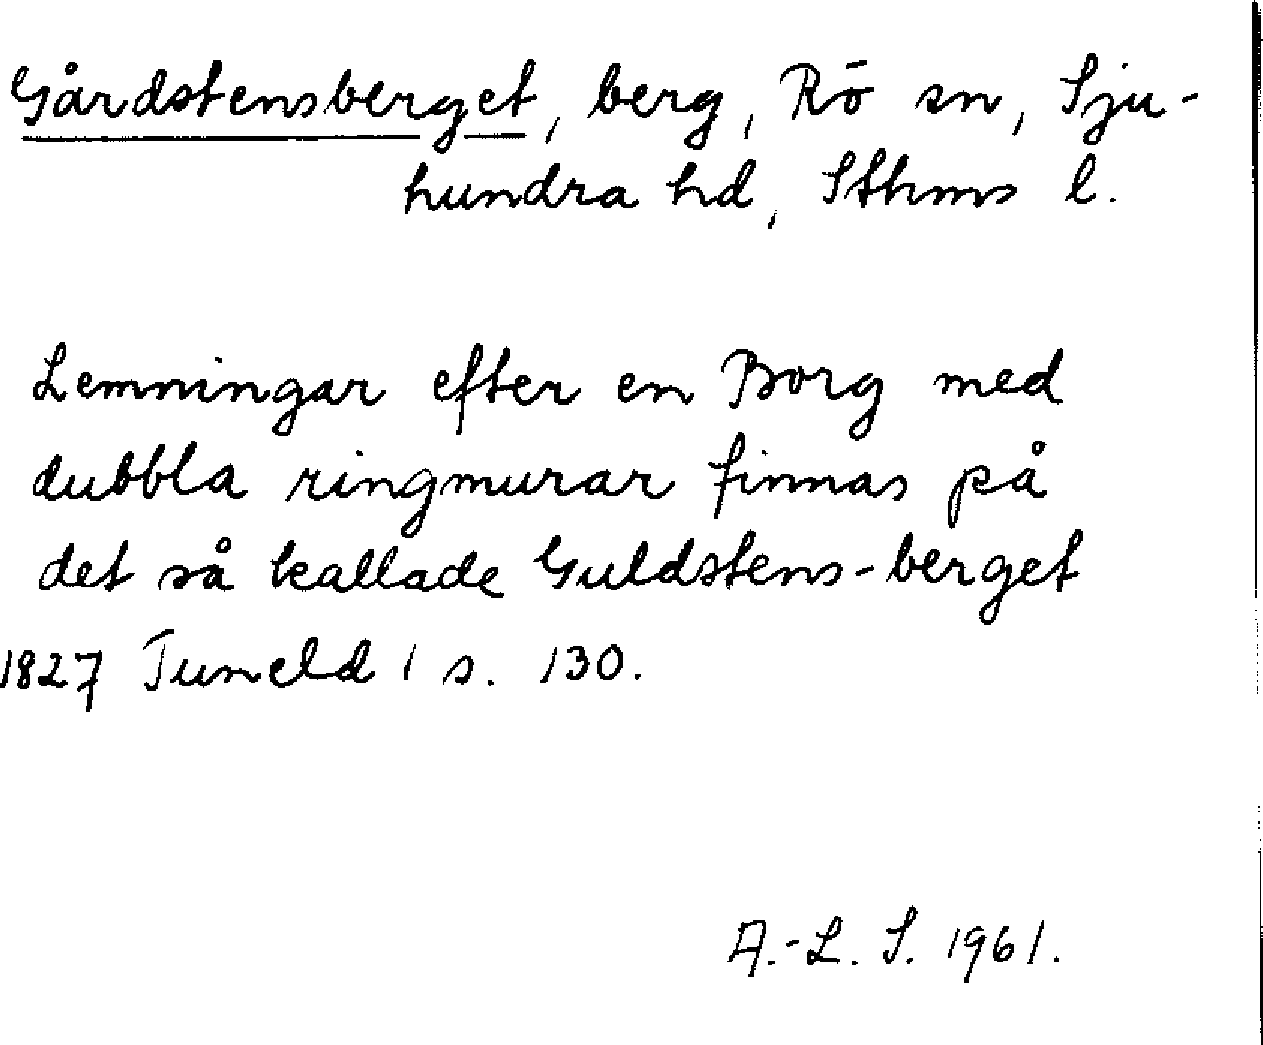 Gårdstensberget, berg, Rö sn, Sju-
hundra hd, Sthms l.
Lemningar efter en Borg med
dubbla ringmurar finnas på
det så kallade Guldstens-berget
1827 Tuneld 1 s. 130.
A.-L. S. 1961.